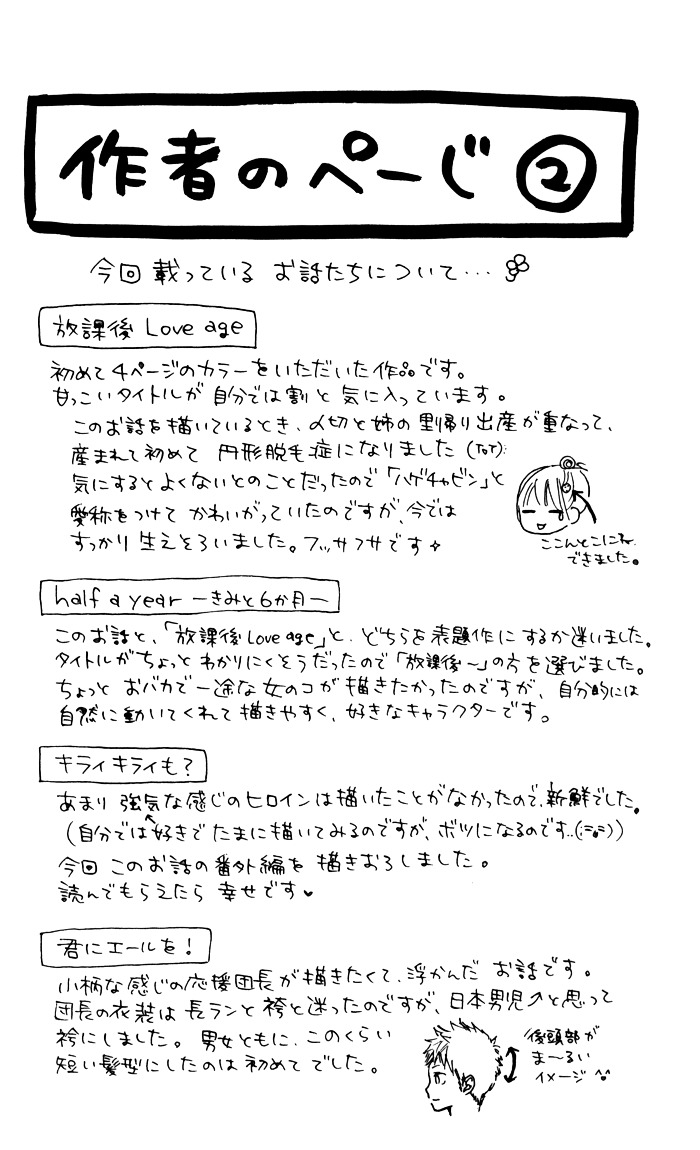 作者のぺーじ②
今回載っているお話たちについて…
放課後 Love age
初めて4ページのカラーをいただいた作品です。
甘っこいタイトルが自分では割と気に入っています。
このお話を描いているとき、〆切と姉の里帰り出産が重なって、
産まれて初めて 円形脱毛症になりました(ToT);
気にするとよくないとのことだったので「ハゲチャビン」と
愛称をつけてかわいがっていたのですが、今では
すっかり生えそろいました。フッサフサです
ここんとこにね、
できました。
half a year ーきみと6か月ー
このお話と、「放課後Love age」と、どちらを表題作にするか迷いました。
タイトルがちょっとわかりにくそうだったので「放課後〜」の方を選びました。
ちょっとおバカで一途な女のコが描きたかったのですが、自分的には
自然に動いてくれて描きやすく、好きなキャラクターです。
キライキライも?
あまり強気な感じのヒロインは描いたことがなかったので、新鮮でした。
(自分では好きでたまに描いてみるのですが、ボツになるのです‥)
今回このお話の番外編を描きおろしました。
読んでもらえたら幸せです♥
君にエールを!
小柄な感じの応援団長が描きたくて、浮かんだお話です。
団長の衣装は長ランと袴と迷ったのですが、日本男児↗と思って
袴にしました。男女ともに、このくらい
短い髪型にしたのは初めてでした。
後頭部が
ま〜るい
イメージ